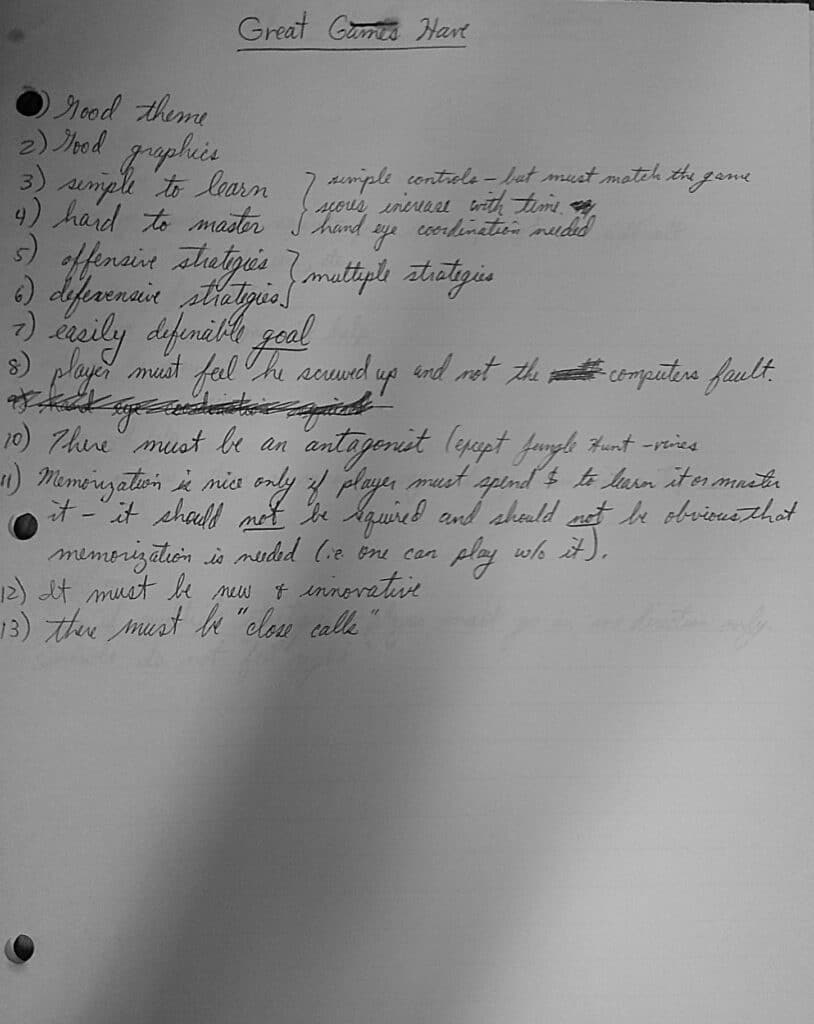 Great Games Have
1) Good theme
2) Good graphics
3) simple to learn } simple controls - but must match the game
scores increase with time.
4) hard to master } hand eye coordination needed
5) offensive strategies } multiple strategies
6) defexensive strategies
7) easily definable goal
8) player must feel he screwed up and not the computers fault.
9) hand eye coordination required
10) There must be an antagonist (except Jungle Hunt - vines
11) Memorization is nice only if player must spend $ to learn it or master
it - it should not be required and should not be obvious that
memorization is needed (i.e. one can play w/o it).
12) It must be new & innovative
13) there must be "close calls"